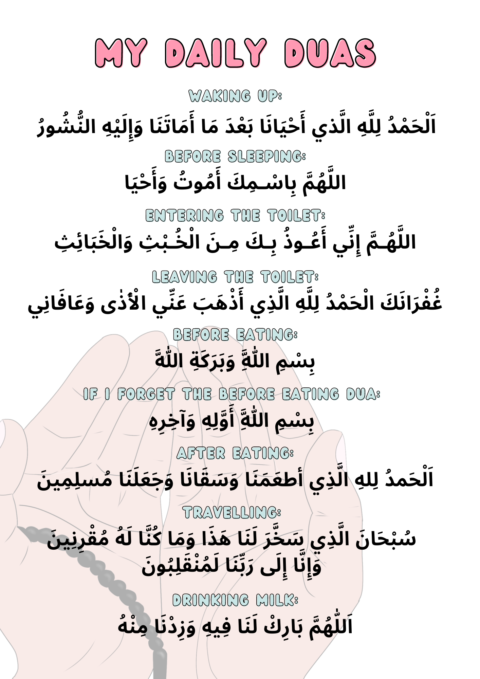 MY DAILY DUAS
WAKING UP:
اَلْحَمْدُ لِلَّهِ الَّذي أَحْيَانَا بَعْدَ مَا أَمَاتَنَا وَإِلَيْهِ النُّشُورُ
BEFORE SLEEPING:
اللَّهُمَّ بِاسْـمِكَ أَمُوتُ وَأَحْيَا
ENTERING THE TOILET:
اللَّهُـمَّ إِنِّي أَعُـوذُ بِـكَ مِـنَ الْخُـبْثِ وَالْخَبَائِثِ
LEAVING THE TOILET:
غُفْرَانَكَ الْحَمْدُ لِلَّهِ الَّذِي أَذْهَبَ عَنِّي الْأذٰى وَعَافَانِي
BEFORE EATING:
بِسْمِ اللهَِّ وَبَرَكَةِ اللهَّ
IF I FORGET THE BEFORE EATING DUA:
بِسْمِ اللهَِّ أَوَّلِهِ وَآخِرِهِ
AFTER EATING:
اَلْحَمدُ لِلهِ الَّذِي أطعَمَنَا وَسَقَانَا وَجَعَلَنَا مُسلِمِينَ
TRAVELLING:
سُبْحَانَ الَّذِي سَخَّرَ لَنَا هَذَا وَمَا كُنَّا لَهُ مُقْرِنِينَ
وَإِنَّا إِلَى رَبِّنَا لَمُنْقَلِبُونَ
DRINKING MILK:
اَللّٰهُمَّ بَارِكْ لَنَا فِيهِ وَزِدْنَا مِنْهُ